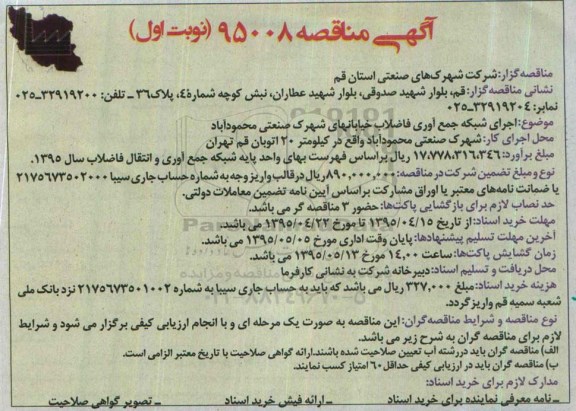 آگهی مناقصه ۹۵۰۰۸ (نوبت اول)
مناقصه‌گزار: شرکت شهرک‌های صنعتی استان قم
نشانی مناقصه‌گزار: قم، بلوار شهید صدوقی، بلوار شهید عطاران، نبش کوچه شماره٤، پلاک۳۶ ـ تلفن: ۳۲۹۱۹۲۰۰ـ۰۲۵
نمابر: ۳۲۹۱۹۲۰٤ـ۰۲۵
موضوع: اجرای شبکه جمع آوری فاضلاب خیابانهای شهرک صنعتی محمودآباد
محل اجرای کار: شهرک صنعتی محمودآباد واقع در کیلومتر ۲۰ اتوبان قم تهران
مبلغ برآورد: ۱۷.۷۷۸.۳۱۶.۳٤۶ ریال براساس فهرست بهای واحد پایه شبکه جمع آوری و انتقال فاضلاب سال ۱۳۹۵.
نوع و مبلغ تضمین شرکت در مناقصه: ۸۹۰,۰۰۰,۰۰۰ریال درقالب واریز وجه به شماره حساب جاری سیبا ۲۱۷۵۶۷۳۵۰۲۰۰۰
یا ضمانت نامه‌های معتبر یا اوراق مشارکت براساس آیین نامه تضمین معاملات دولتی.
حد نصاب لازم برای بازگشایی پاکت‌ها: حضور ۳ مناقصه گر می باشد.
مهلت خرید اسناد: از تاریخ ۱۳۹۵/۰٤/۱۵ تا مورخ ۱۳۹۵/۰٤/۲۲ می باشد.
آخرین مهلت تسلیم پیشنهادها: پایان وقت اداری مورخ ۱۳۹۵/۰۵/۰۵ می باشد.
زمان گشایش پاکت‌ها: ساعت ۱٤,۰۰ مورخ ۱۳۹۵/۰۵/۱۳ می باشد.
محل دریافت و تسلیم اسناد: دبیرخانه شرکت به نشانی کارفرما
هزینه خرید اسناد: مبلغ ۳۲۷,۰۰۰ ریال می باشد که باید به حساب جاری سیبا به شماره ۲۱۷۵۶۷۳۵۰۱۰۰۲ نزد بانک ملی
شعبه سمیه قم واریزگردد.
نوع مناقصه و شرایط مناقصه‌گران: این مناقصه به صورت یک مرحله ای و با انجام ارزیابی کیفی برگزار می شود و شرایط
لازم برای مناقصه گران به شرح زیر می باشد.
الف) مناقصه گران باید دررشته آب تعیین صلاحیت شده باشند.ارائه گواهی صلاحیت با تاریخ معتبر الزامی است.
ب) مناقصه گران باید در ارزیابی کیفی حداقل ۶۰ امتیاز کسب نمایند.
مدارک لازم برای خرید اسناد:
ـ نامه معرفی نماینده برای خرید اسناد ـ ارائه فیش خرید اسناد ـ تصویر گواهی صلاحیت